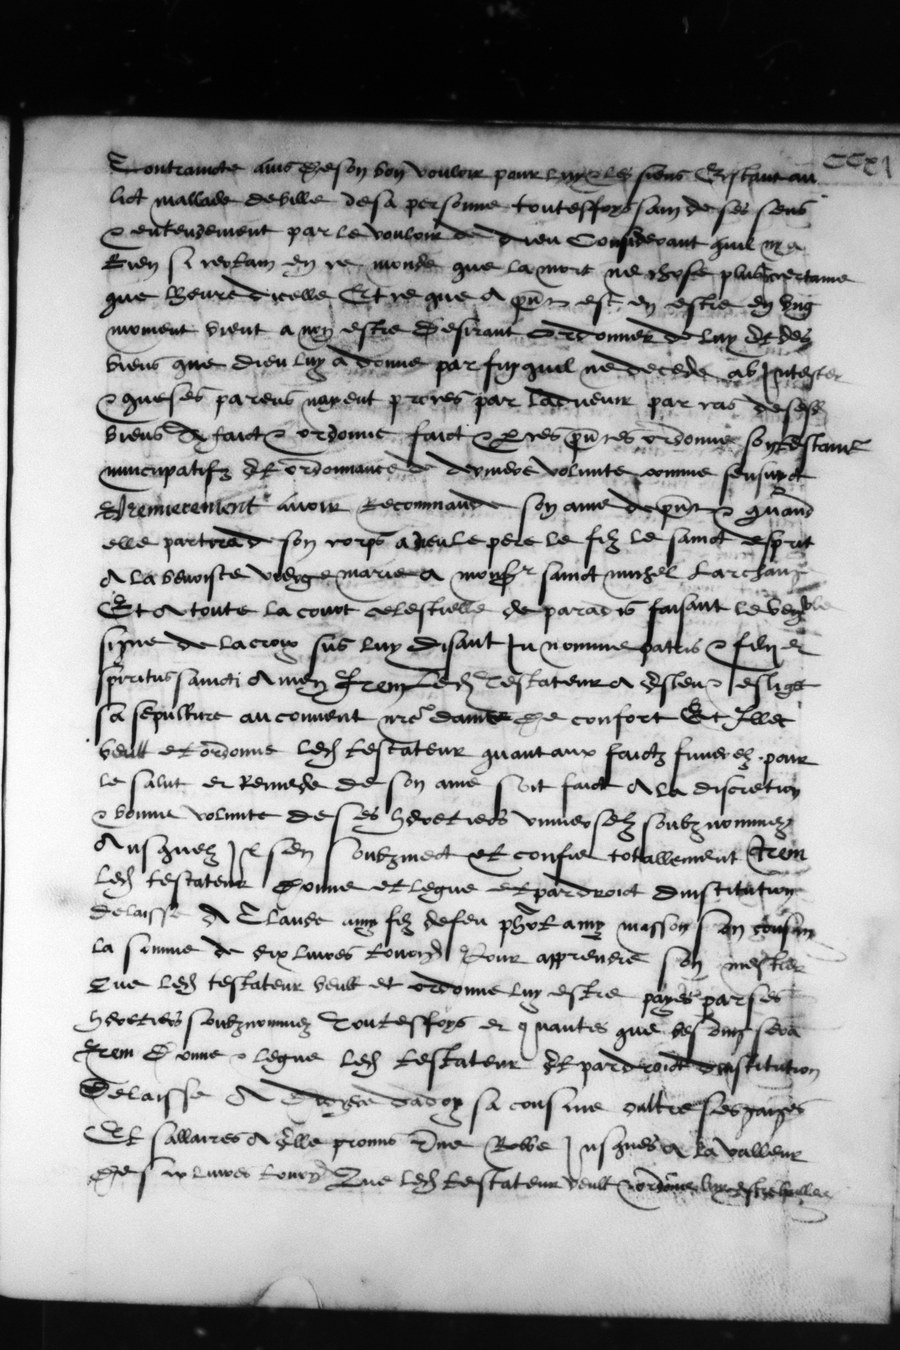 CCxi
Contraincte ains de son bon vouloir pour luy & les siens Estant au
lict mallade de ville de sa personne touteffoys sain de ses sens
& entendement par le vouloir de dieu Considerant quil ny a
Rien si certain en ce monde que la mort ne chose plus incertaine
que lheure dicelle Et ce que a pnt est en estre en ung
moment vient a non estre Desirant Ordonner de luy Et des
biens que dieu luy a donne par fin quil ne decede ab Intestat
& que ses parens nayent proces par ladvenir par cas de sesd
biens A faict & ordonne faict & par ces pntes ordonne son testament
nuncupatif Et ordonnance de derniere volunte comme sensuyt
Premierement avoir Recommande son ame de pnt & quand
elle partira de son corps a dieu le pere le filz le sainct esprit
A la benoiste vierge marie A monsr sainct michel Larchange
Et A toute la court celestielle de paradis faisant le venerable
signe de la croix sus luy Disant In nomine patris & filii et
spiritus sancti Amen Item Led Testateur A Esleu & esligt
sa sepulture au convent nre dame de confort Et Illec
veult et ordonne led testateur quant aux faictz funerelz pour
le salut et Remede de son ame soit faict A la discretion
& bonne volunte de ses heretiers universelz soubznommez
Ausquelz Il sen soubzmect et confie totallement Item
Led testateur Donne et legue et par droict dinstitution
Delaisse A Claude amy filz de feu phot amy masson son cousin
la somme de dix livres tournois Pour apprendre son mestier
Que led testateur veult et ordonne luy estre payes par ses
heretiers soubznommez Touteffoys et quantes que besoing sera
Item Donne & legue led testateur Et par droict dinstitution
Delaisse A dadoz sa cousine oultre ses gaiges
Et sallaires A Elle promis Une Robbe Jusques A la valleur
De six livres tourn Que led testateur veult & ordonne luy estre